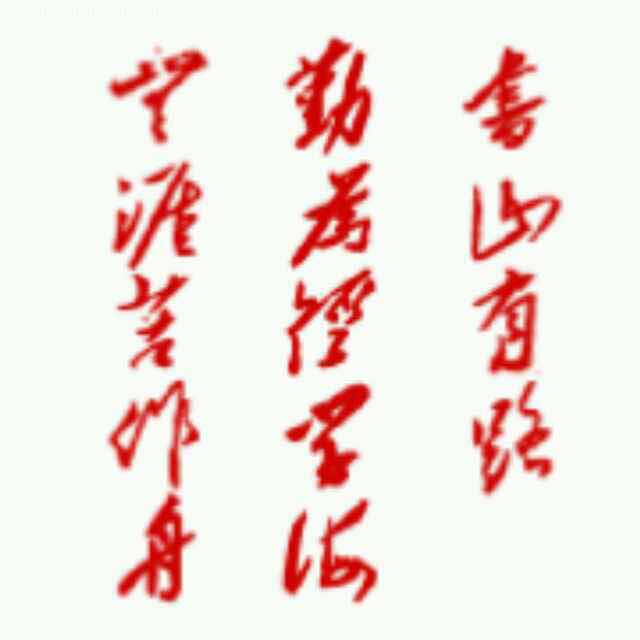 書山有路
勤為徑學海
無涯苦作舟